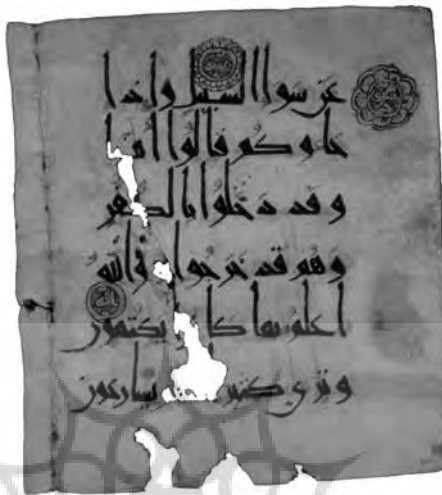 عن سوا السبيل واذا
جاوكم قالوا امنا
وقد دخلوا بالكفر
وهم قد خرجوا والله
اعلم بما يكتمون
وترى يسارعون